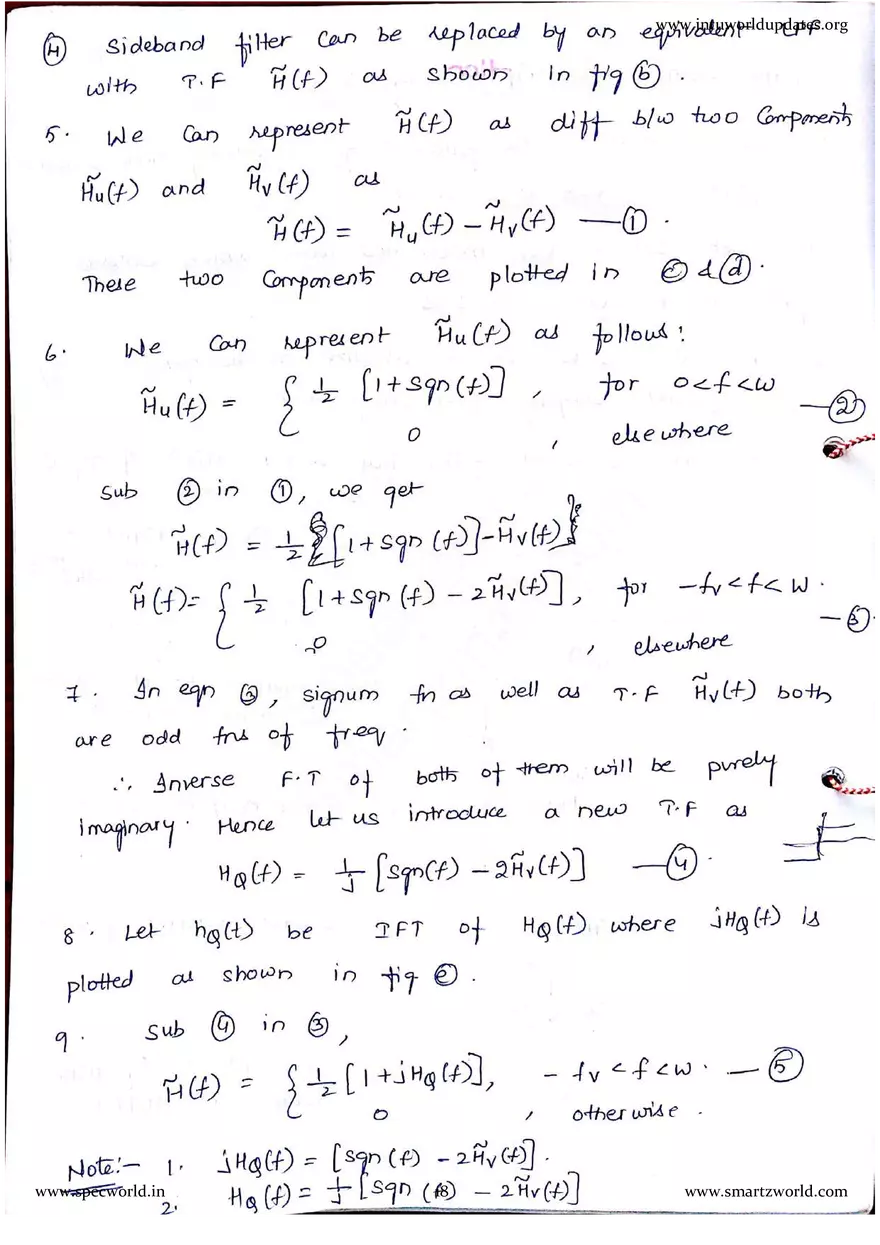 www.jntuworldupdates.org
④ Sideband filter can be replaced by an equivalent LPF
with T.F H̃(f) as shown in fig ⓑ.
5. We can represent H̃(f) as diff b/w two Components
H̃u(f) and H̃v(f) as
H̃(f) = H̃u(f) – H̃v(f) —①.
These two Components are plotted in ⓒ & ⓓ.
6. We can represent H̃u(f) as follows:
H̃u(f) = { 1/2 [1+sgn(f)] , for 0<f<w —②
0 , elsewhere
Sub ② in ①, we get
H̃(f) = 1/2 {[1+sgn (f)]-H̃v(f)}
H̃(f)= { 1/2 [1+sgn (f) – 2H̃v(f)], for -fv<f<w. —③.
0 , elsewhere
7. In eqn ③, signum fn as well as T.F H̃v(f) both
are odd fns of freq.
∴ Inverse F.T of both of them will be purely
imaginary. Hence let us introduce a new T.F as
HQ(f) = 1/J [sgn(f) – 2H̃v(f)] —④.
8. Let hQ(t) be IFT of HQ(f) where jHQ(f) is
plotted as shown in fig ⓔ.
9. Sub ④ in ③,
H̃(f) = { 1/2 [1+jHQ(f)], - fv<f<w. —⑤
0 , otherwise.
Note:- 1. jHQ(f) = [sgn (f) – 2H̃v(f)].
2. HQ(f) = 1/J [sgn (f) – 2H̃v(f)]
www.specworld.in
18
www.smartzworld.com